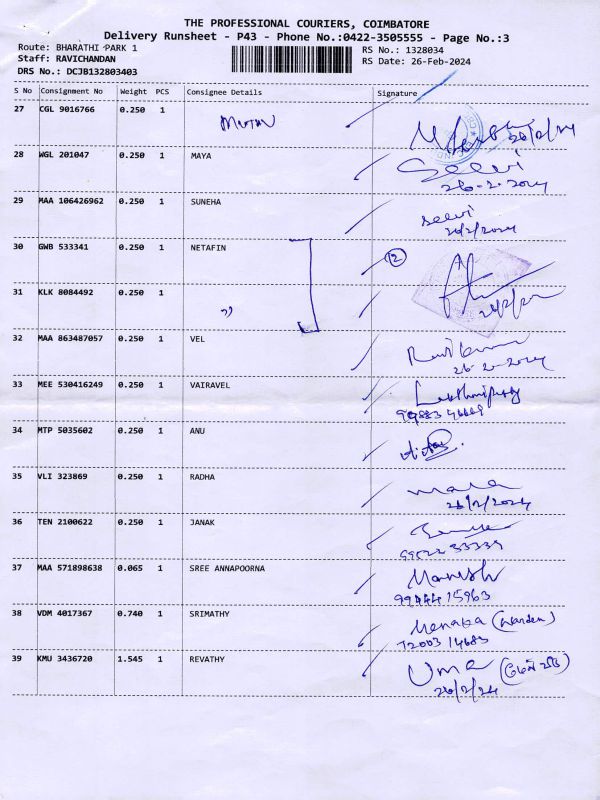 THE PROFESSIONAL COURIERS, COIMBATORE
Delivery Runsheet - P43 - Phone No.:0422-3505555 - Page No.:3
Route: BHARATHI PARK 1 RS No.: 1328034
Staff: RAVICHANDAN RS Date: 26-Feb-2024
DRS No.: DCJB132803403
S No Consignment No Weight PCS Consignee Details Signature
27 CGL 9016766 0.250 1
26/2/24
28 WGL 201047 0.250 1 MAYA Selvi
26-2-2024
29 MAA 106426962 0.250 1 SUNEHA selvi
26/2/2024
30 GWB 533341 0.250 1 NETAFIN 2
31 KLK 8084492 0.250 1 "
32 MAA 863487057 0.250 1 VEL
26-2-2024
33 MEE 530416249 0.250 1 VAIRAVEL
34 MTP 5035602 0.250 1 ANU
35 VLI 323869 0.250 1 RADHA mala
26/2/2024
36 TEN 2100622 0.250 1 JANAK
37 MAA 571898638 0.065 1 SREE ANNAPOORNA Manish
99444 15963
38 VDM 4017367 0.740 1 SRIMATHY Menaka (warden)
72003 14683
39 KMU 3436720 1.545 1 REVATHY Uma
26/2/24